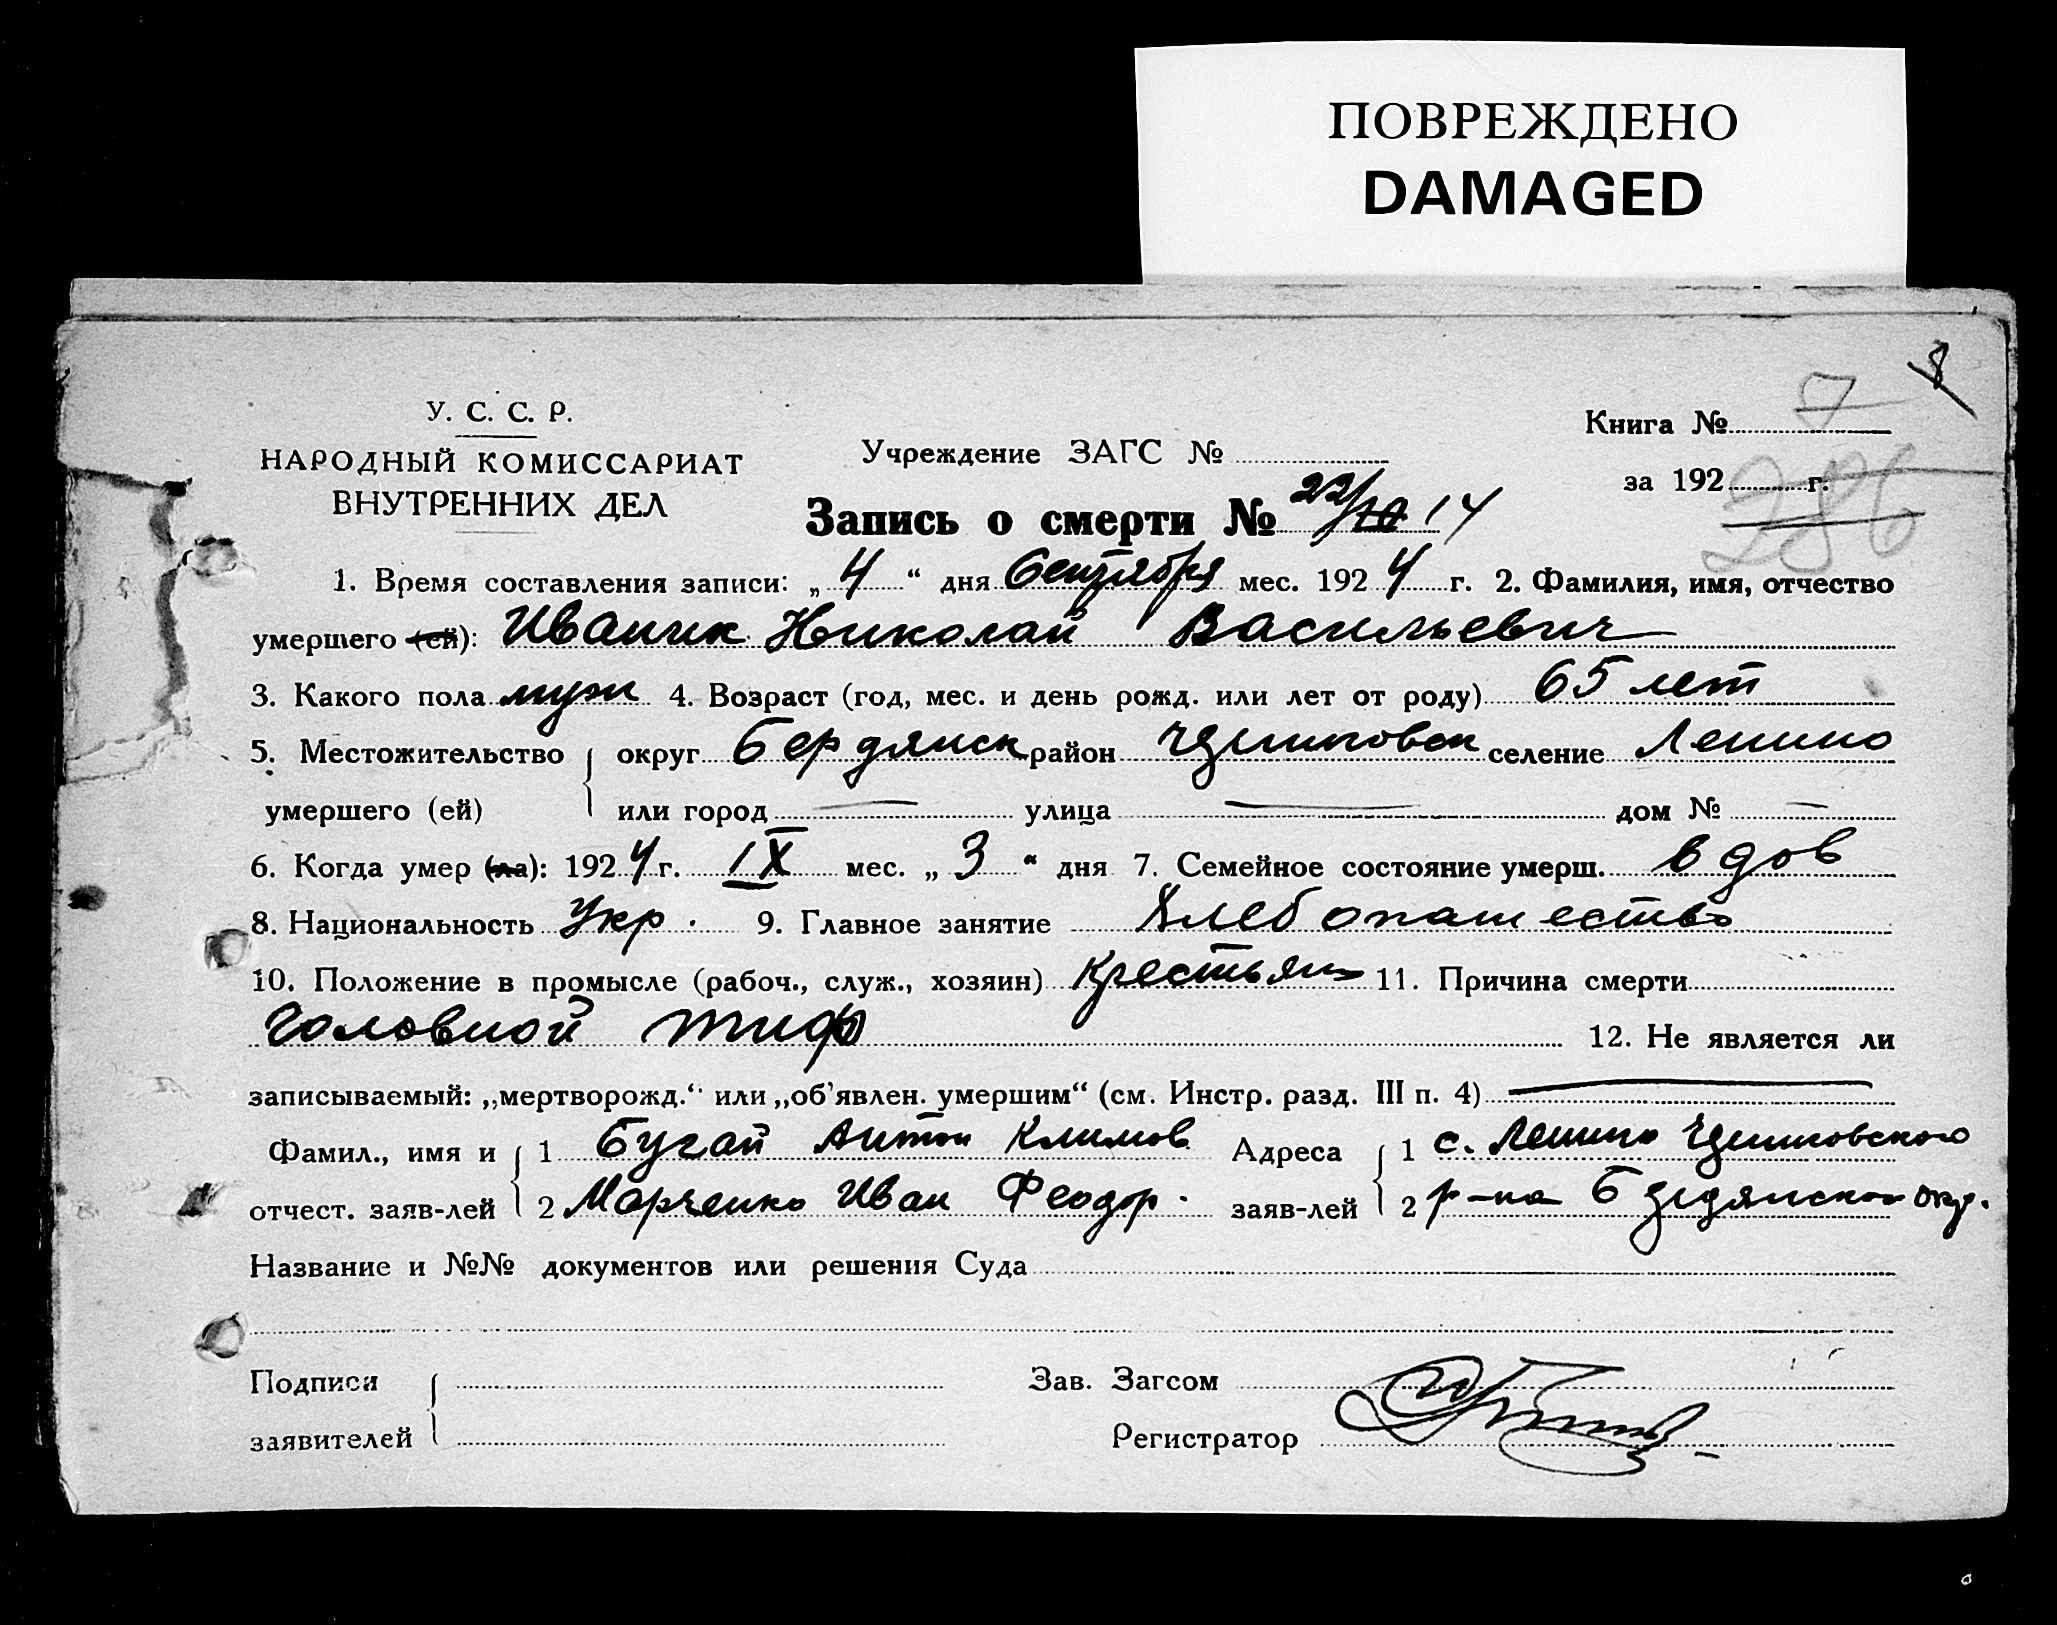 ПОВРЕЖДЕНО
DAMAGED
8
У. С. С. Р.
НАРОДНЫЙ КОМИССАРИАТ
ВНУТРЕННИХ ДЕЛ
Учреждение ЗАГС №
Книга № 7
за 192 г.
286
Запись о смерти № 22/10 14
1. Время составления записи: „ 4 “ дня Сентября мес. 192 4 г. 2. Фамилия, имя, отчество
умершего (ей): Иваник Николай Васильевич
3. Какого пола муж 4. Возраст (год, мес. и день рожд. или лет от роду) 65 лет
5. Местожительство округ Бердянск район селение Ленино
умершего (ей) или город — улица — дом № —
6. Когда умер (ла): 192 4 г. IX мес. „ 3 “ дня 7. Семейное состояние умерш. вдов
8. Национальность Укр. 9. Главное занятие Хлебопашество
10. Положение в промысле (рабоч., служ., хозяин) Крестьян 11. Причина смерти
головной тиф 12. Не является ли
записываемый: „мертворожд.“ или „об'явлен. умершим“ (см. Инстр. разд. III п. 4) —
Фамил., имя и 1 Бугай Антон Климов Адреса 1 с. Ленино
отчест. заяв-лей 2 Марченко Иван Феодор. заяв-лей 2 р-на Бердянского окр.
Название и №№ документов или решения Суда
Подписи Зав. Загсом
заявителей Регистратор